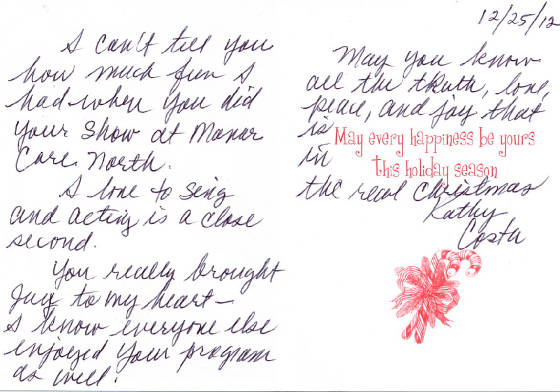 I can't tell you
how much fun I
had when you did
your show at Manor
Care North.
I love to sing
and acting is a close
second.
You really brought
Joy to my heart—
I know everyone else
enjoyed your program
as well!
12/25/12
May you know
all the truth, love,
peace, and joy that
is
May every happiness be yours
in
this holiday season
the real Christmas
Kathy
Costa